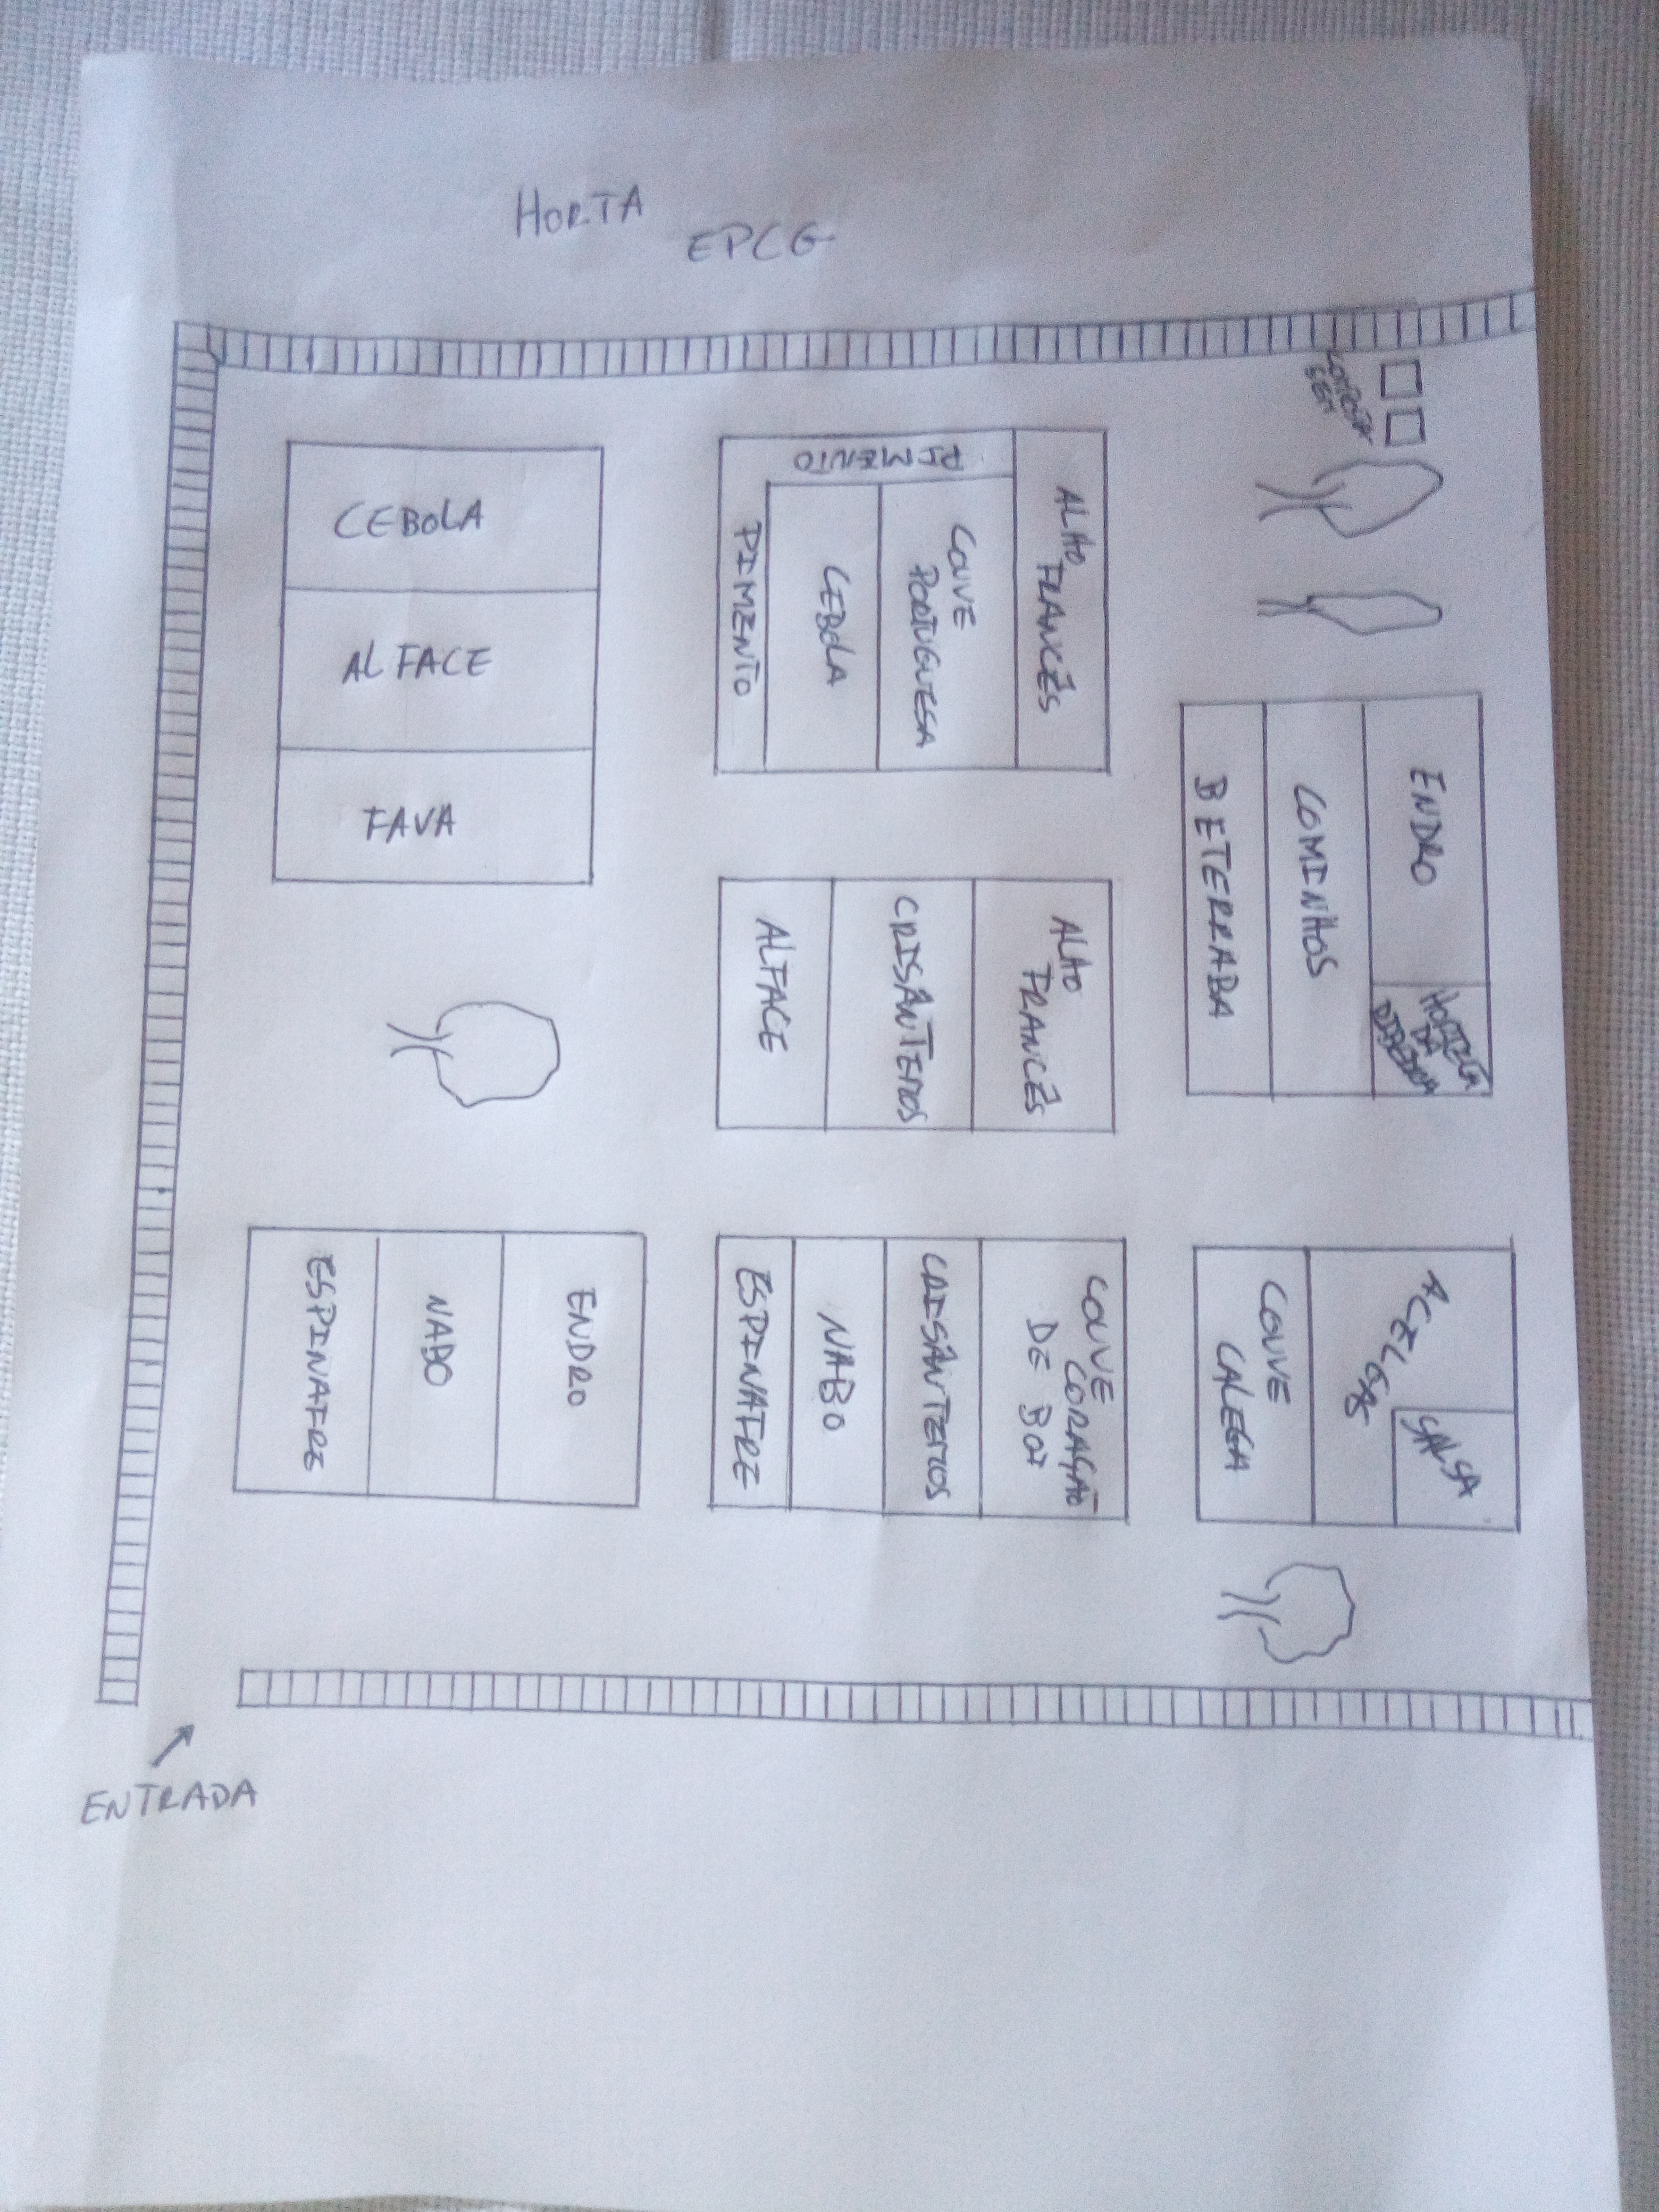 HORTA
EPCG
CEBOLA
ALFACE
FAVA
PIMENTO
PIMENTO
CEBOLA
COUVE
PORTUGUESA
ALHO
FRANCÊS
ENDRO
COMINHOS
BETERRABA
ALHO
FRANCÊS
CRISÂNTEMOS
ALFACE
ENDRO
NABO
ESPINAFRE
COUVE
CORAÇÃO
DE BOI
CRISÂNTEMOS
NABO
ESPINAFRE
ACELGAS
SALSA
COUVE
GALEGA
ENTRADA